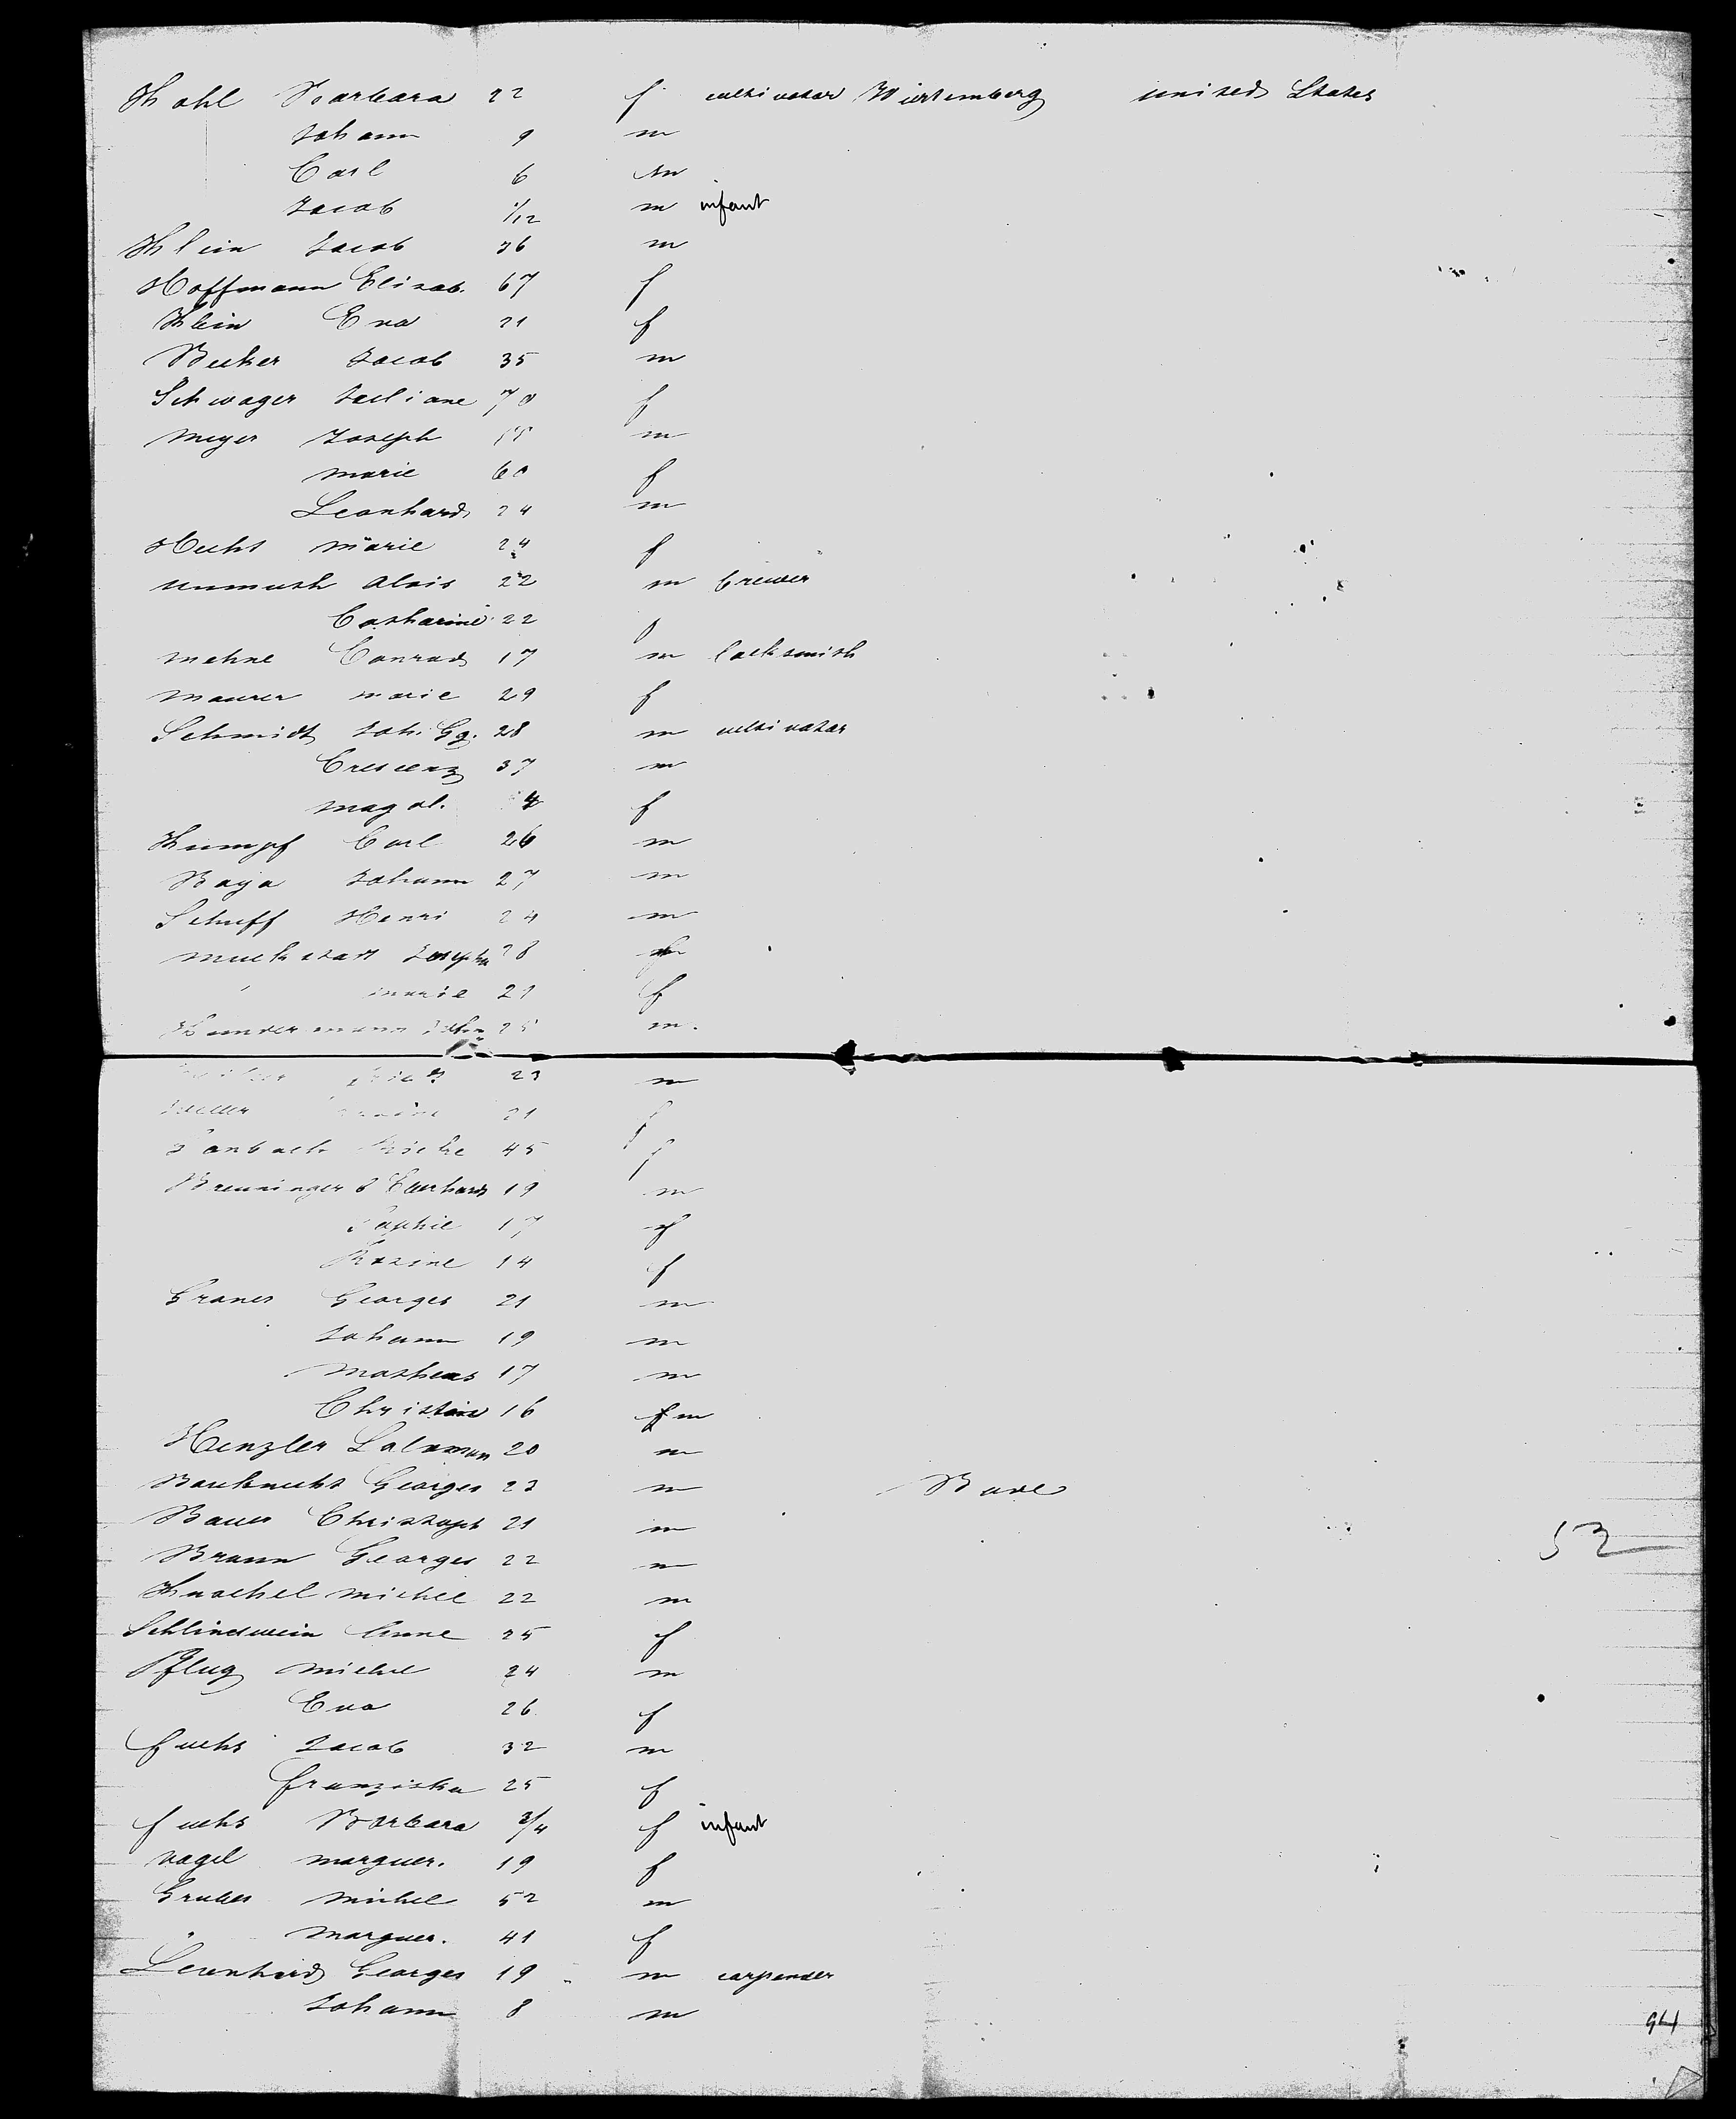 Kohl Barbara 22 f cultivator Würtemberg united States
Johann 9 m
Carl 6 m
Jacob 1/12 m infant
Klein Jacob 36 m
Hoffmann Elisab. 67 f
Klein Eva 21 f
Becker Jacob 35 m
Schwager Juliane 70 f
Meyer Joseph m
Marie 60 f
Leonhard 24 m
Hecht Marie 24 f
Alois 22 m brewer
Catharine 22 f
Mehne Conrad 17 m locksmith
Maurer Marie 29 f
Schmidt Joh. Gg. 28 m cultivator
Crescenz 37 m
Magdl. 4 f
Kumpf Carl 26 m
Baya Johann 27 m
Schuff Henri 24 m
Josepha 28
" Marie 21 f
m.
23 m
21 f
Ricke 45 f
Breuninger Eberhard 19 m
Sophie 17 f
Rosine 14 f
Graner Georges 21 m
Johann 19 m
Matheas 17 m
16 m
Henzler Salomon 20 m
Bauknecht Georges 23 m Bade
Bauer Christoph 21 m
52
Braun Georges 22 m
Knochel Michel 22 m
Schlindwein Anne 25 f
Pflug Michel 24 m
Eva 26 f
Fuchs Jacob 32 m
Franziska 25 f
Fuchs Barbara 3/4 f infant
Nagel Marguer. 19 f
Gruber Michel 52 m
" Marguer. 41 f
Leonhard Georges 19 m carpender
Johann 8 m
94